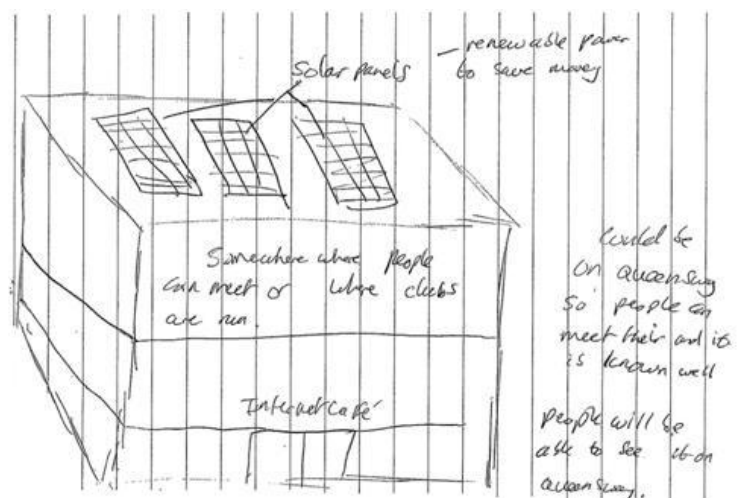 Solar panels
– renewable power
to save money
Somewhere where people
can meet or where clubs
are run.
Internet Café
Could be
on queensway
so people can
meet their and it
is known well
people will be
able to see it on
queensway.